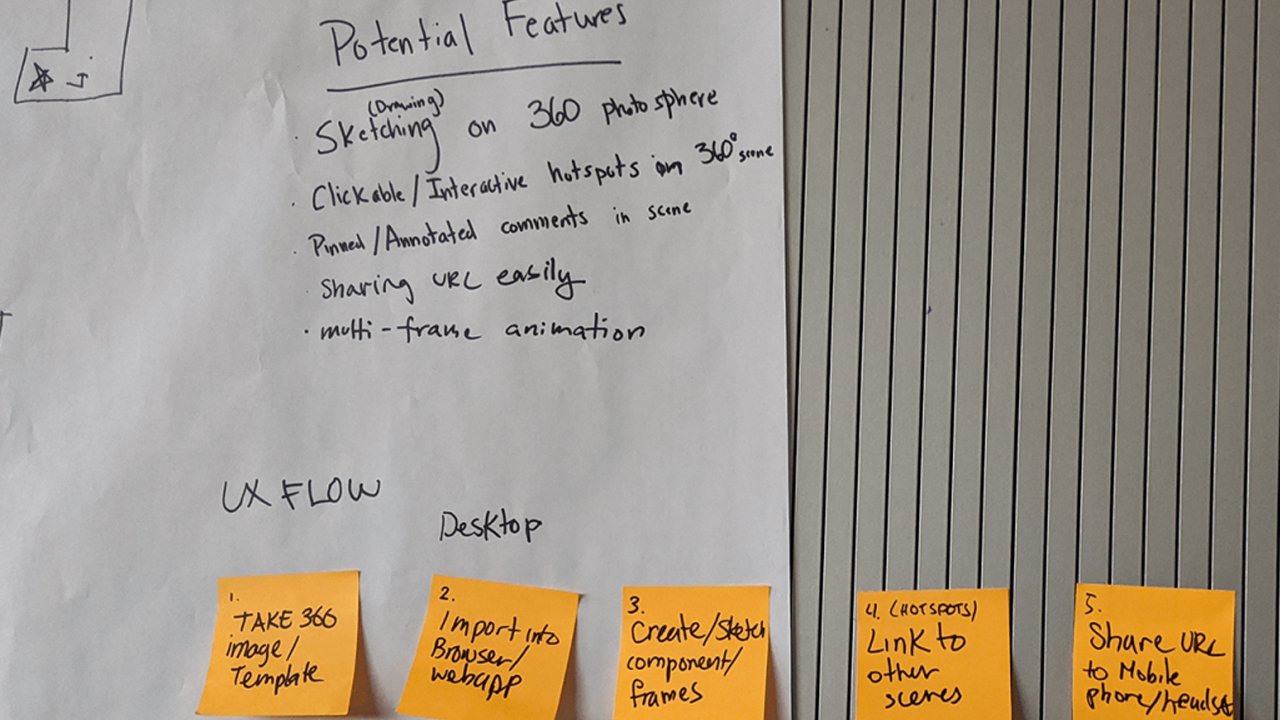 Potential Features
(Drawing)
· Sketching on 360 photosphere
· Clickable/Interactive hotspots in 360° scene
· Pinned/Annotated comments in scene
· Sharing URL easily
· multi-frame animation
UX FLOW
Desktop
1.
TAKE 360
image/
Template
2.
Import into
Browser/
webapp
3.
Create/Sketch
component/
frames
4. (HOTSPOTS)
Link to
other
scenes
5.
Share URL
to Mobile
phone/headset